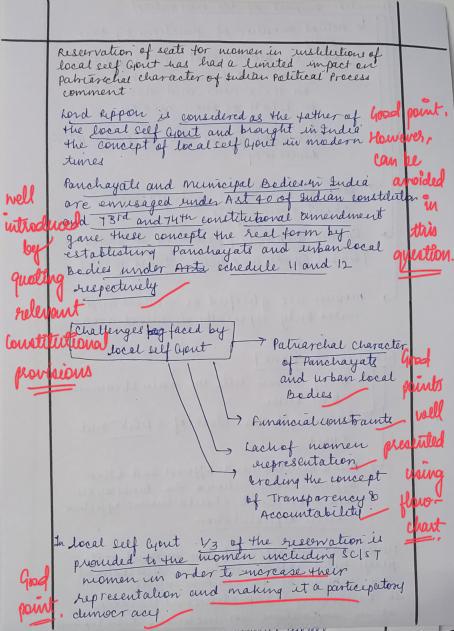 Reservation of seats for women in institutions of
local self Govt has had a limited impact on
patriarchal character of Indian Political Process
comment
Lord Rippon is considered as the father of
the local self Govt and brought in India
the concept of local self Govt in modern
times
Good point.
However,
can be
avoided
in
this
question.
Panchayats and Municipal Bodies in India
are envisaged under Art 40 of Indian constitution
and 73rd and 74th constitutional amendment
gave these concepts the real form by
establishing Panchayats and urban local
Bodies under Arts schedule 11 and 12
respectively
well
introduced
by
quoting
relevant
constitutional
provisions
Challenges faced by
local self Govt
Patriarchal character
of Panchayats
and urban local
Bodies
Financial constraints
Lack of women
representation
Eroding the concept
of Transparency &
Accountability
Good
points
well
presented
using
flow-
chart.
In local self Govt 1/3 of the reservation is
provided to the women including SC/ST
women in order to increase their
representation and making it a participatory
democracy.
Good
point.